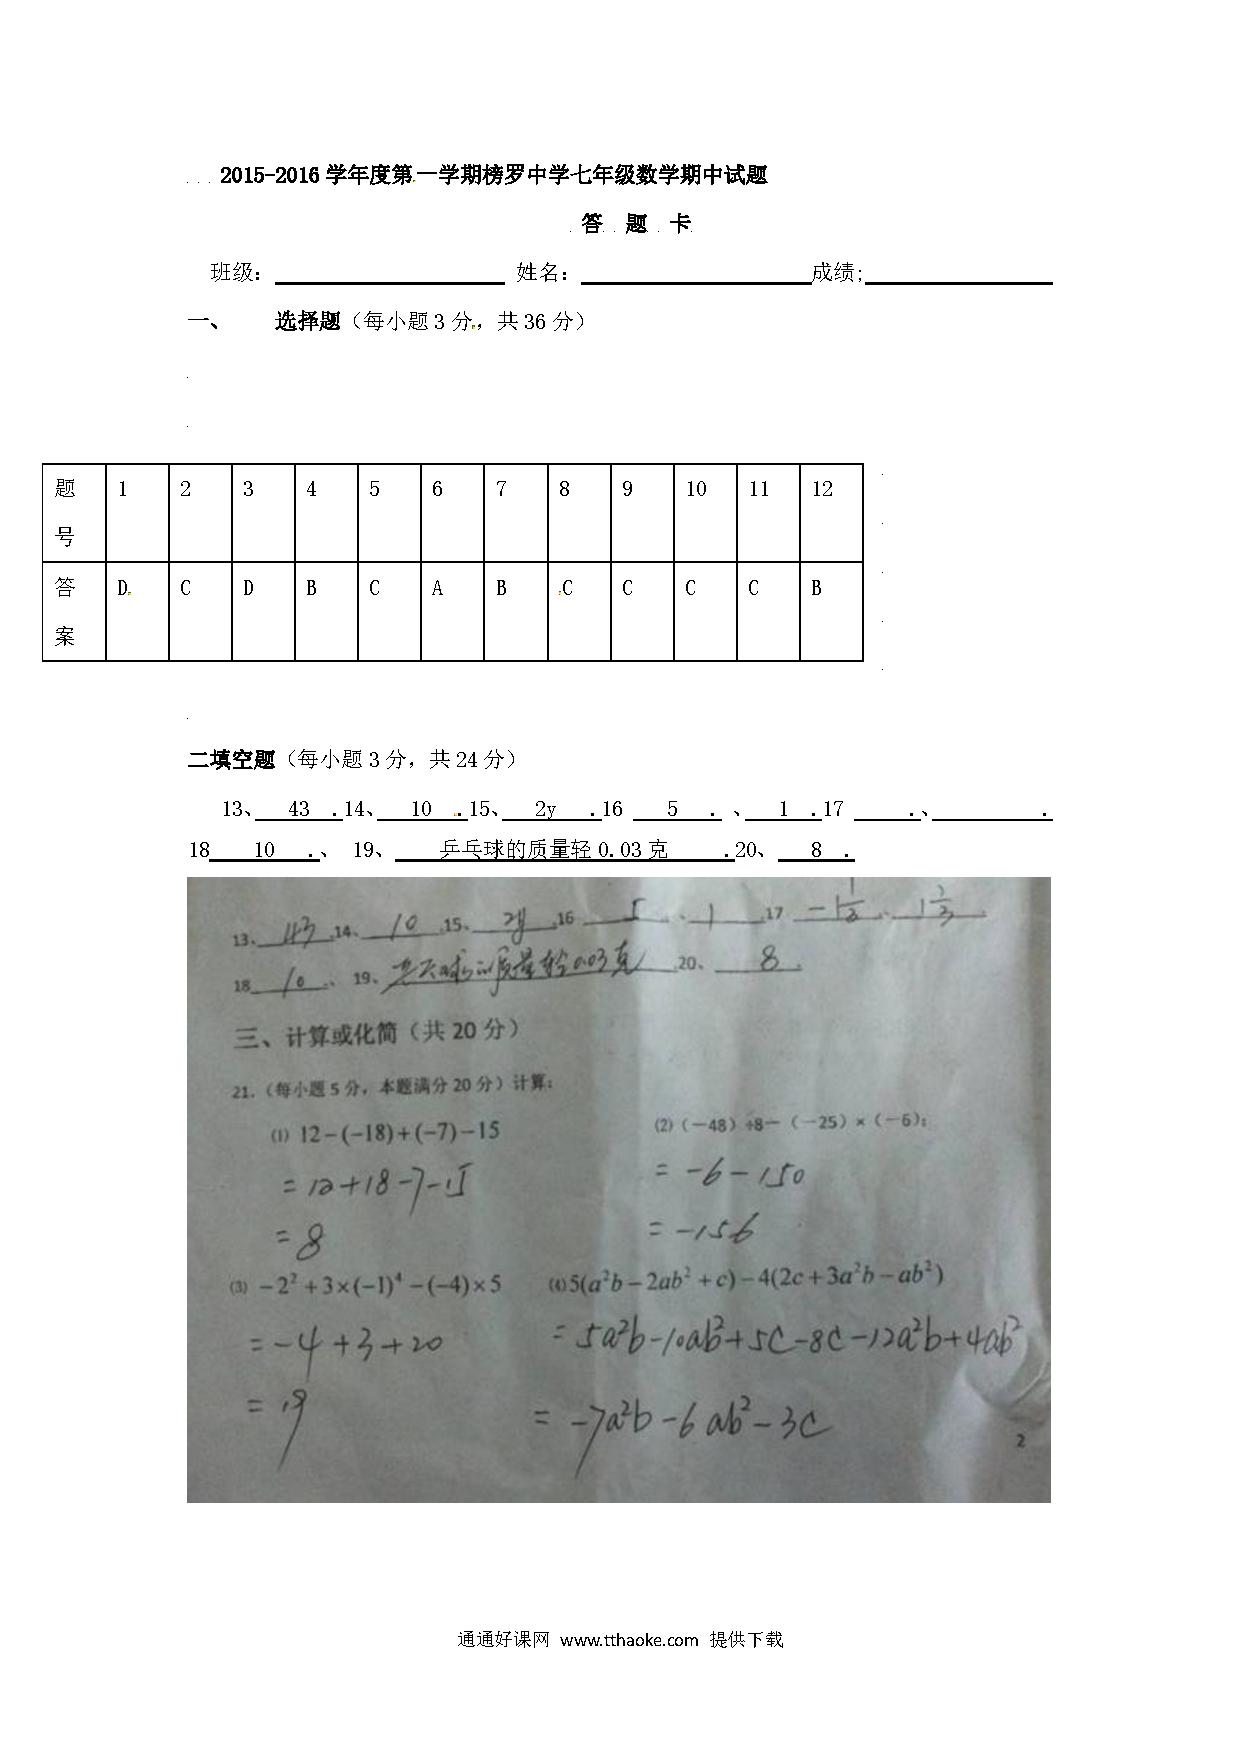 2015-2016 学年度第一学期榜罗中学七年级数学期中试题
答 题 卡
班级: 姓名: 成绩;
一、 选择题（每小题3分，共36分）
题号 1 2 3 4 5 6 7 8 9 10 11 12
答案 D C D B C A B C C C C B
二填空题（每小题3分，共24分）
13、 43 .14、 10 .15、 2y .16 5 . 、 1 .17 .、 .
18 10 .、 19、 乒乓球的质量轻0.03克 .20、 8 .
13、 43 .14、 10 .15、 2y .16 5 、 1 .17 -1 1/2 、 1 2/3 .
18 10 、 19、 乒乓球的质量轻0.03克 .20、 8 .
三、计算或化简（共20分）
21.（每小题5分，本题满分20分）计算:
(1) 12-(-18)+(-7)-15 (2)（-48）÷8-（-25）×（-6）;
=12+18-7-15 =-6-150
=8 =-156
(3) -2²+3×(-1)⁴-(-4)×5 (4) 5(a²b-2ab²+c)-4(2c+3a²b-ab²)
=-4+3+20 =5a²b-10ab²+5c-8c-12a²b+4ab²
=19 =-7a²b-6ab²-3c
2
通通好课网 www.tthaoke.com 提供下载